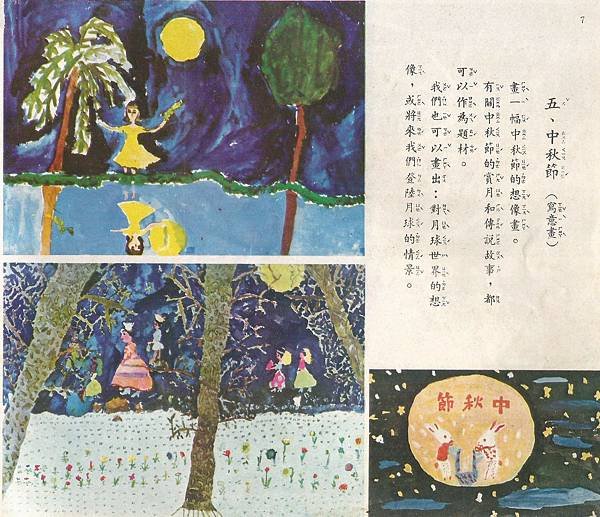 7
五、中秋節(寫意畫)
畫一幅中秋節的想像畫。
有關中秋節的賞月和傳說故事,都
可以作為題材。
我們也可以畫出:對月球世界的想
像,或將來我們登陸月球的情景。
中秋節